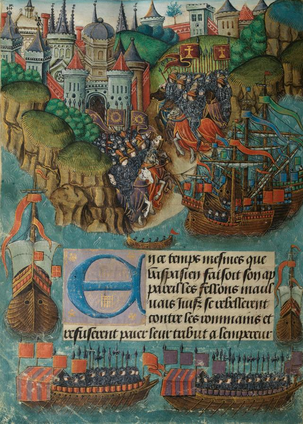 En ce temps mesmes que
vaspasien faisoit son ap
pareil les fellons maul
uais iuifz se rebellerent
contre les rommains et
refuserent paier leur tribut a lempereur